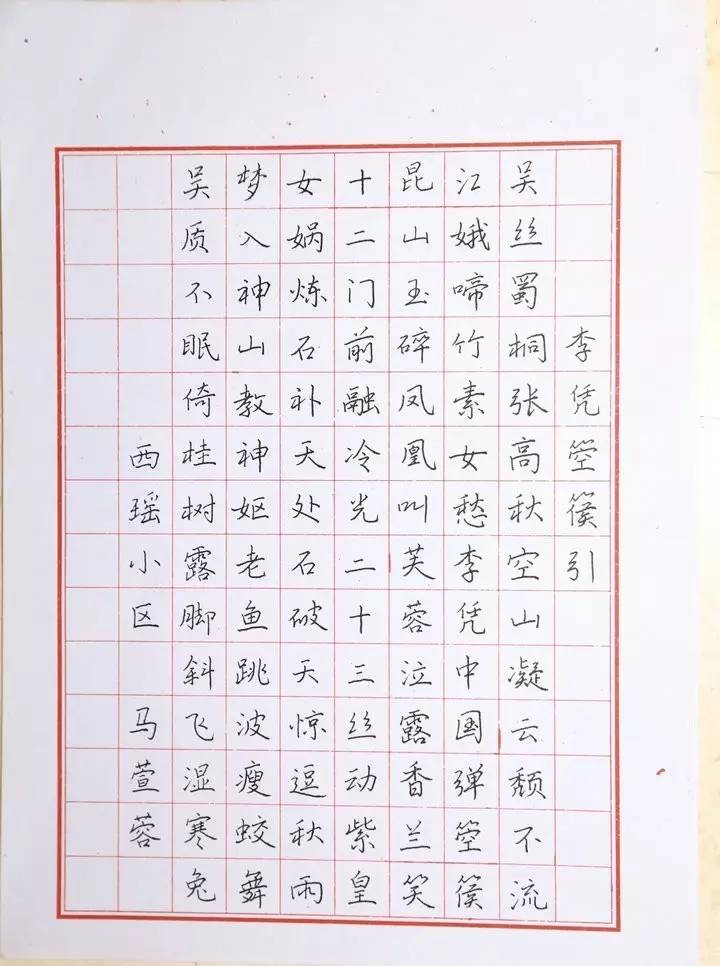 李凭箜篌引
吴丝蜀桐张高秋空山凝云颓不流
江娥啼竹素女愁李凭中国弹箜篌
昆山玉碎凤凰叫芙蓉泣露香兰笑
十二门前融冷光二十三丝动紫皇
女娲炼石补天处石破天惊逗秋雨
梦入神山教神妪老鱼跳波瘦蛟舞
吴质不眠倚桂树露脚斜飞湿寒兔
西瑶小区 马萱蓉